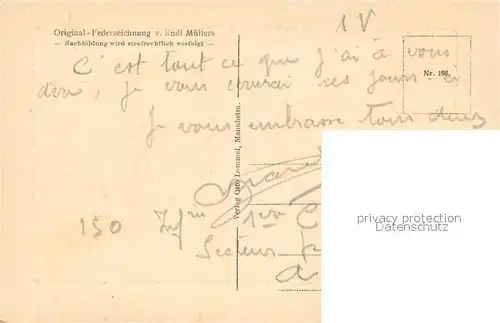 1 V
Original-Federzeichnung v. Rudi Müllers
— Nachbildung wird strafrechtlich verfolgt —
Nr. 198
C'est tout ce que j'ai à vous
dire, je vous ces jours ci
Je vous embrasse tous deux
Verlag Otto Lommel, Mannheim.
150
Secteur
privacy protection
Datenschutz